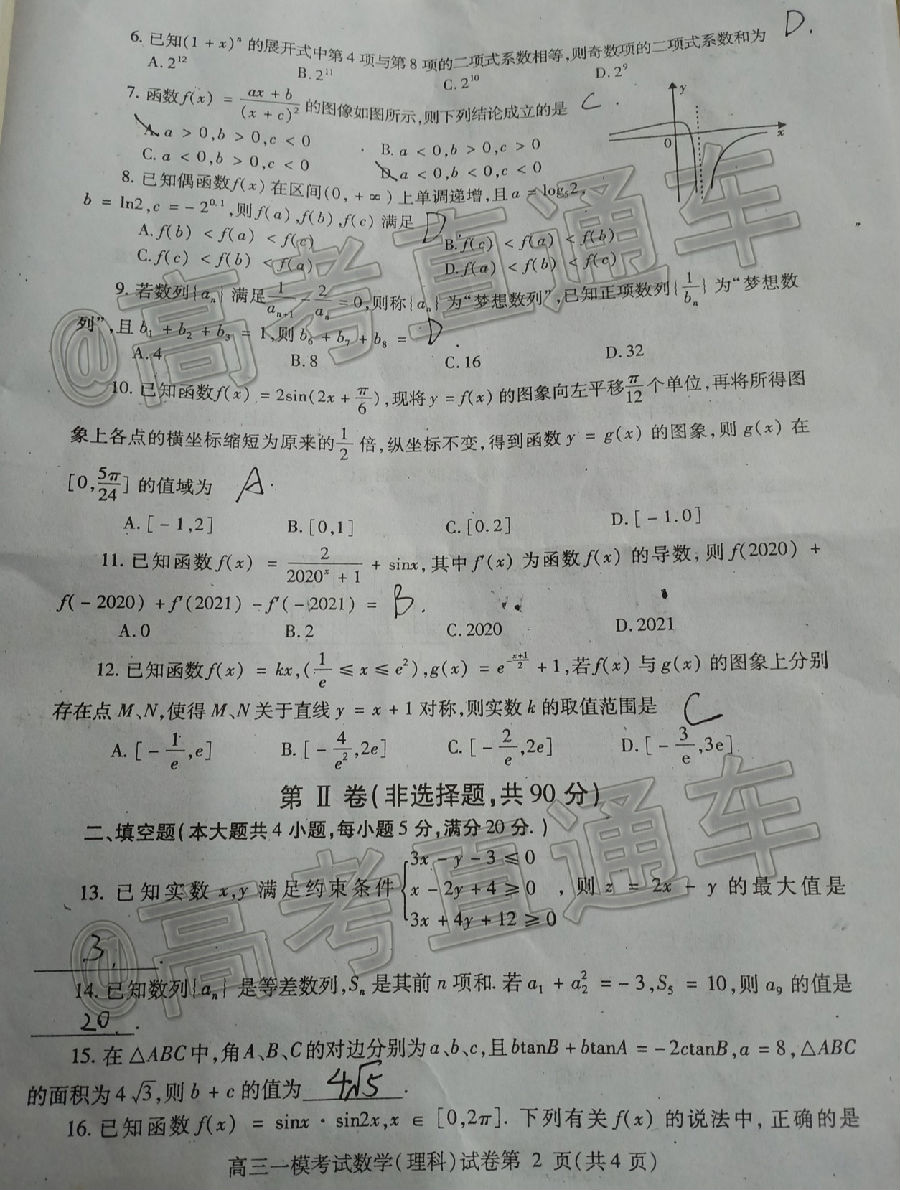 6. 已知(1 + x)ⁿ 的展开式中第 4 项与第 8 项的二项式系数相等,则奇数项的二项式系数和为 D.
A. 2¹² B. 2¹¹ C. 2¹⁰ D. 2⁹
7. 函数f(x) = (ax + b)/(x + c)² 的图像如图所示,则下列结论成立的是 C.
A. a > 0,b > 0,c < 0 B. a < 0,b > 0,c > 0
C. a < 0,b > 0,c < 0 D. a < 0,b < 0,c < 0
y
0
x
8. 已知偶函数f(x) 在区间(0, + ∞) 上单调递增,且 a = log₅2,
b = ln2,c = - 2^0.1,则 f(a),f(b),f(c) 满足 D
A. f(b) < f(a) < f(c) B. f(c) < f(a) < f(b)
C. f(c) < f(b) < f(a) D. f(a) < f(b) < f(c)
9. 若数列{aₙ} 满足 1/aₙ₊₁ - 2/aₙ = 0,则称{aₙ} 为“梦想数列”,已知正项数列{1/bₙ} 为“梦想数
列”,且 b₁ + b₂ + b₃ = 1,则 b₆ + b₇ + b₈ = D
A. 4 B. 8 C. 16 D. 32
10. 已知函数f(x) = 2sin(2x + π/6),现将 y = f(x) 的图象向左平移 π/12 个单位,再将所得图
象上各点的横坐标缩短为原来的 1/2 倍,纵坐标不变,得到函数 y = g(x) 的图象,则 g(x) 在
[0, 5π/24] 的值域为 A.
A. [ - 1,2] B. [0,1] C. [0.2] D. [ - 1.0]
11. 已知函数 f(x) = 2/(2020ˣ + 1) + sinx,其中 f′(x) 为函数 f(x) 的导数,则 f(2020) +
f(- 2020) + f′(2021) - f′(- 2021) = B.
A. 0 B. 2 C. 2020 D. 2021
12. 已知函数 f(x) = kx,(1/e ≤ x ≤ e²),g(x) = e^(-(x+1)/2) + 1,若 f(x) 与 g(x) 的图象上分别
存在点 M、N,使得 M、N 关于直线 y = x + 1 对称,则实数 k 的取值范围是 C
A. [ - 1/e ,e] B. [ - 4/e² ,2e] C. [ - 2/e ,2e] D. [ - 3/e ,3e]
第 Ⅱ 卷(非选择题,共90分)
二、填空题(本大题共 4 小题,每小题 5 分,满分 20 分.)
13. 已知实数 x,y 满足约束条件 { 3x - y - 3 ≤ 0
x - 2y + 4 ≥ 0 , 则 z = 2x - y 的最大值是
3x + 4y + 12 ≥ 0
3. .
14. 已知数列{aₙ} 是等差数列,Sₙ 是其前 n 项和. 若 a₁ + a₂² = - 3,S₅ = 10,则 a₉ 的值是
20. .
15. 在 △ABC 中,角 A、B、C 的对边分别为 a、b、c,且 btanB + btanA = - 2ctanB,a = 8,△ABC
的面积为 4√3,则 b + c 的值为 4√5 .
16. 已知函数 f(x) = sinx · sin2x,x ∈ [0,2π]. 下列有关 f(x) 的说法中, 正确的是
高三一模考试数学(理科)试卷第 2 页(共 4 页)
@高考直通车
@高考直通车